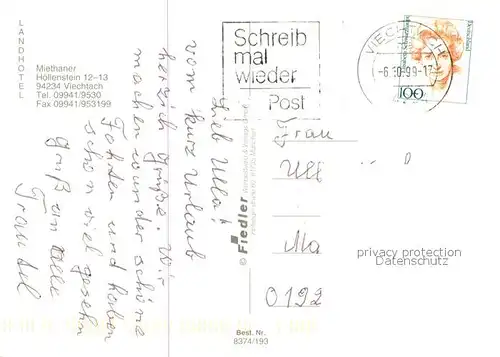 LANDHOTEL
Miethaner
Höllenstein 12-13
94234 Viechtach
Tel. 09941/9530
Fax 09941/953199
Schreib
mal
wieder
Post
VIECHTACH
-6.10.99-17
Deutschland
100
Lieb Ulla!
vom kurz Urlaub
herzlich Grüße. Wir
machen wunder schöne
Fahrten und haben
schon viel gesehn
Gruß an Alle
Traudel
© Fiedler
Frau
Ull
Ma
0192
privacy protection
Datenschutz
Best. Nr.
8374/193